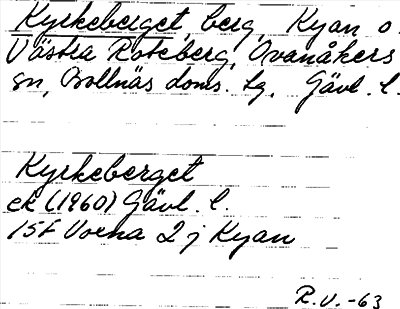 Kyrkeberget, berg, Kyan o.
Västra Roteberg, Ovanåkers
sn, Bollnäs doms. tg. Gävl. l.
Kyrkeberget
ek (1960) Gävl. l.
15F Voxna 2 j Kyan
R.V. -63